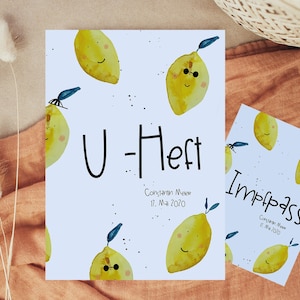 U-Heft
Constantin Meier
17. Mai 2020
Impfpass
Constantin Meier
17. Mai 2020